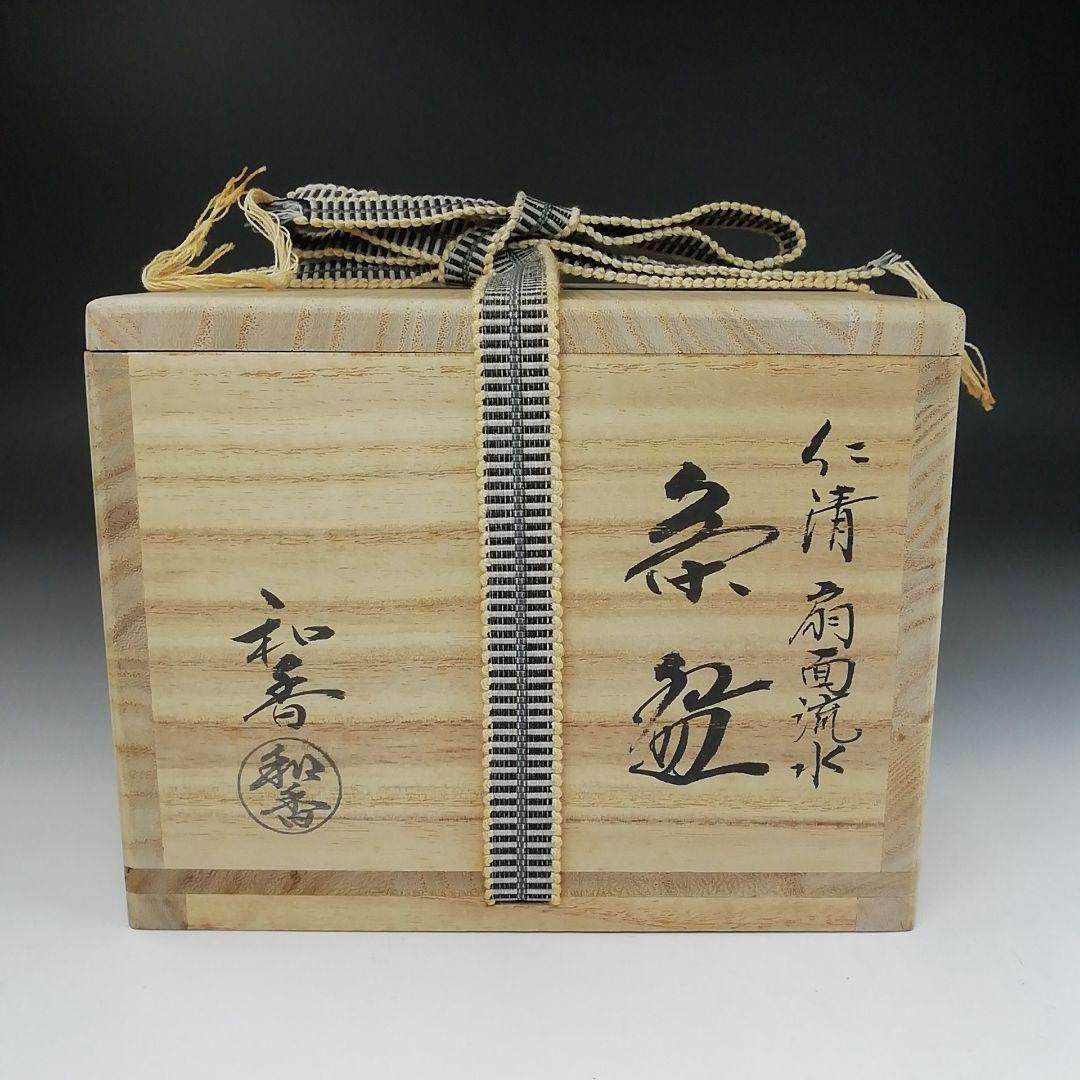 仁清 扇面流水
茶盌
和香
和香